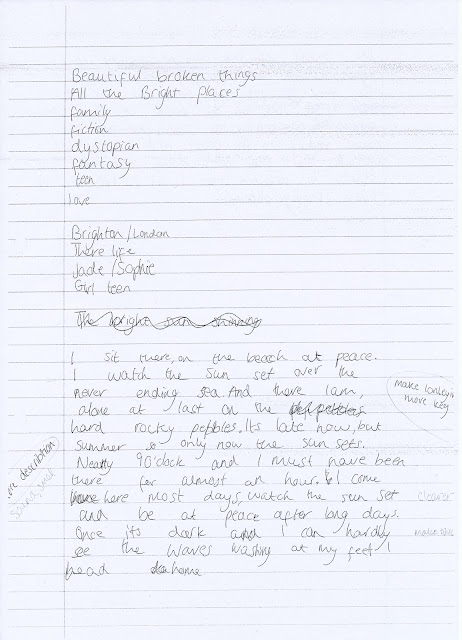 Beautiful broken things
All the Bright places
family
fiction
dystopian
fantasy
teen
love
Brighton/London
There life
Jade/Sophie
Girl teen
The bright sun shining
I sit there, on the beach at peace.
I watch the sun set over the
never ending sea. And there I am,
alone at last on the
hard rocky pebbles. Its late now, but
summer so only now the sun sets.
Nearly 9 O'clock and I must have been
there for almost an hour. I come
here most days, watch the sun set
and be at peace after long days.
Once its dark and I can hardly
see the waves washing at my feet I
head home
make
more key
description
clearer
make this